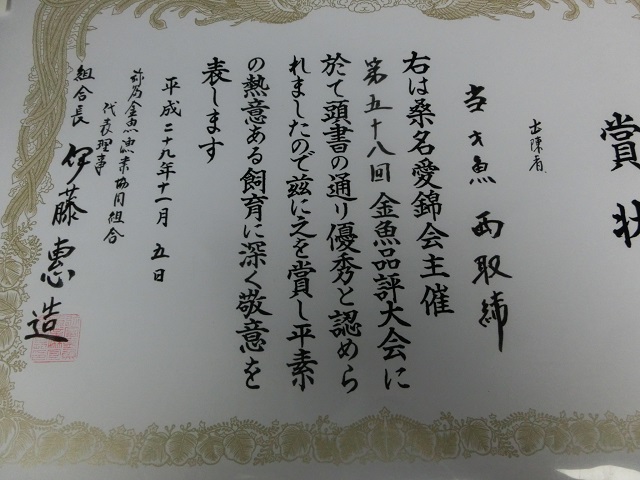 賞状
出陳者
当才魚 西取締
右は桑名愛錦会主催
第五十八回金魚品評大会に
於て頭書の通り優秀と認めら
れましたので茲に之を賞し平素
の熱意ある飼育に深く敬意を
表します
平成二十九年十一月五日
弥富金魚漁業協同組合
代表理事
組合長 伊藤惠造